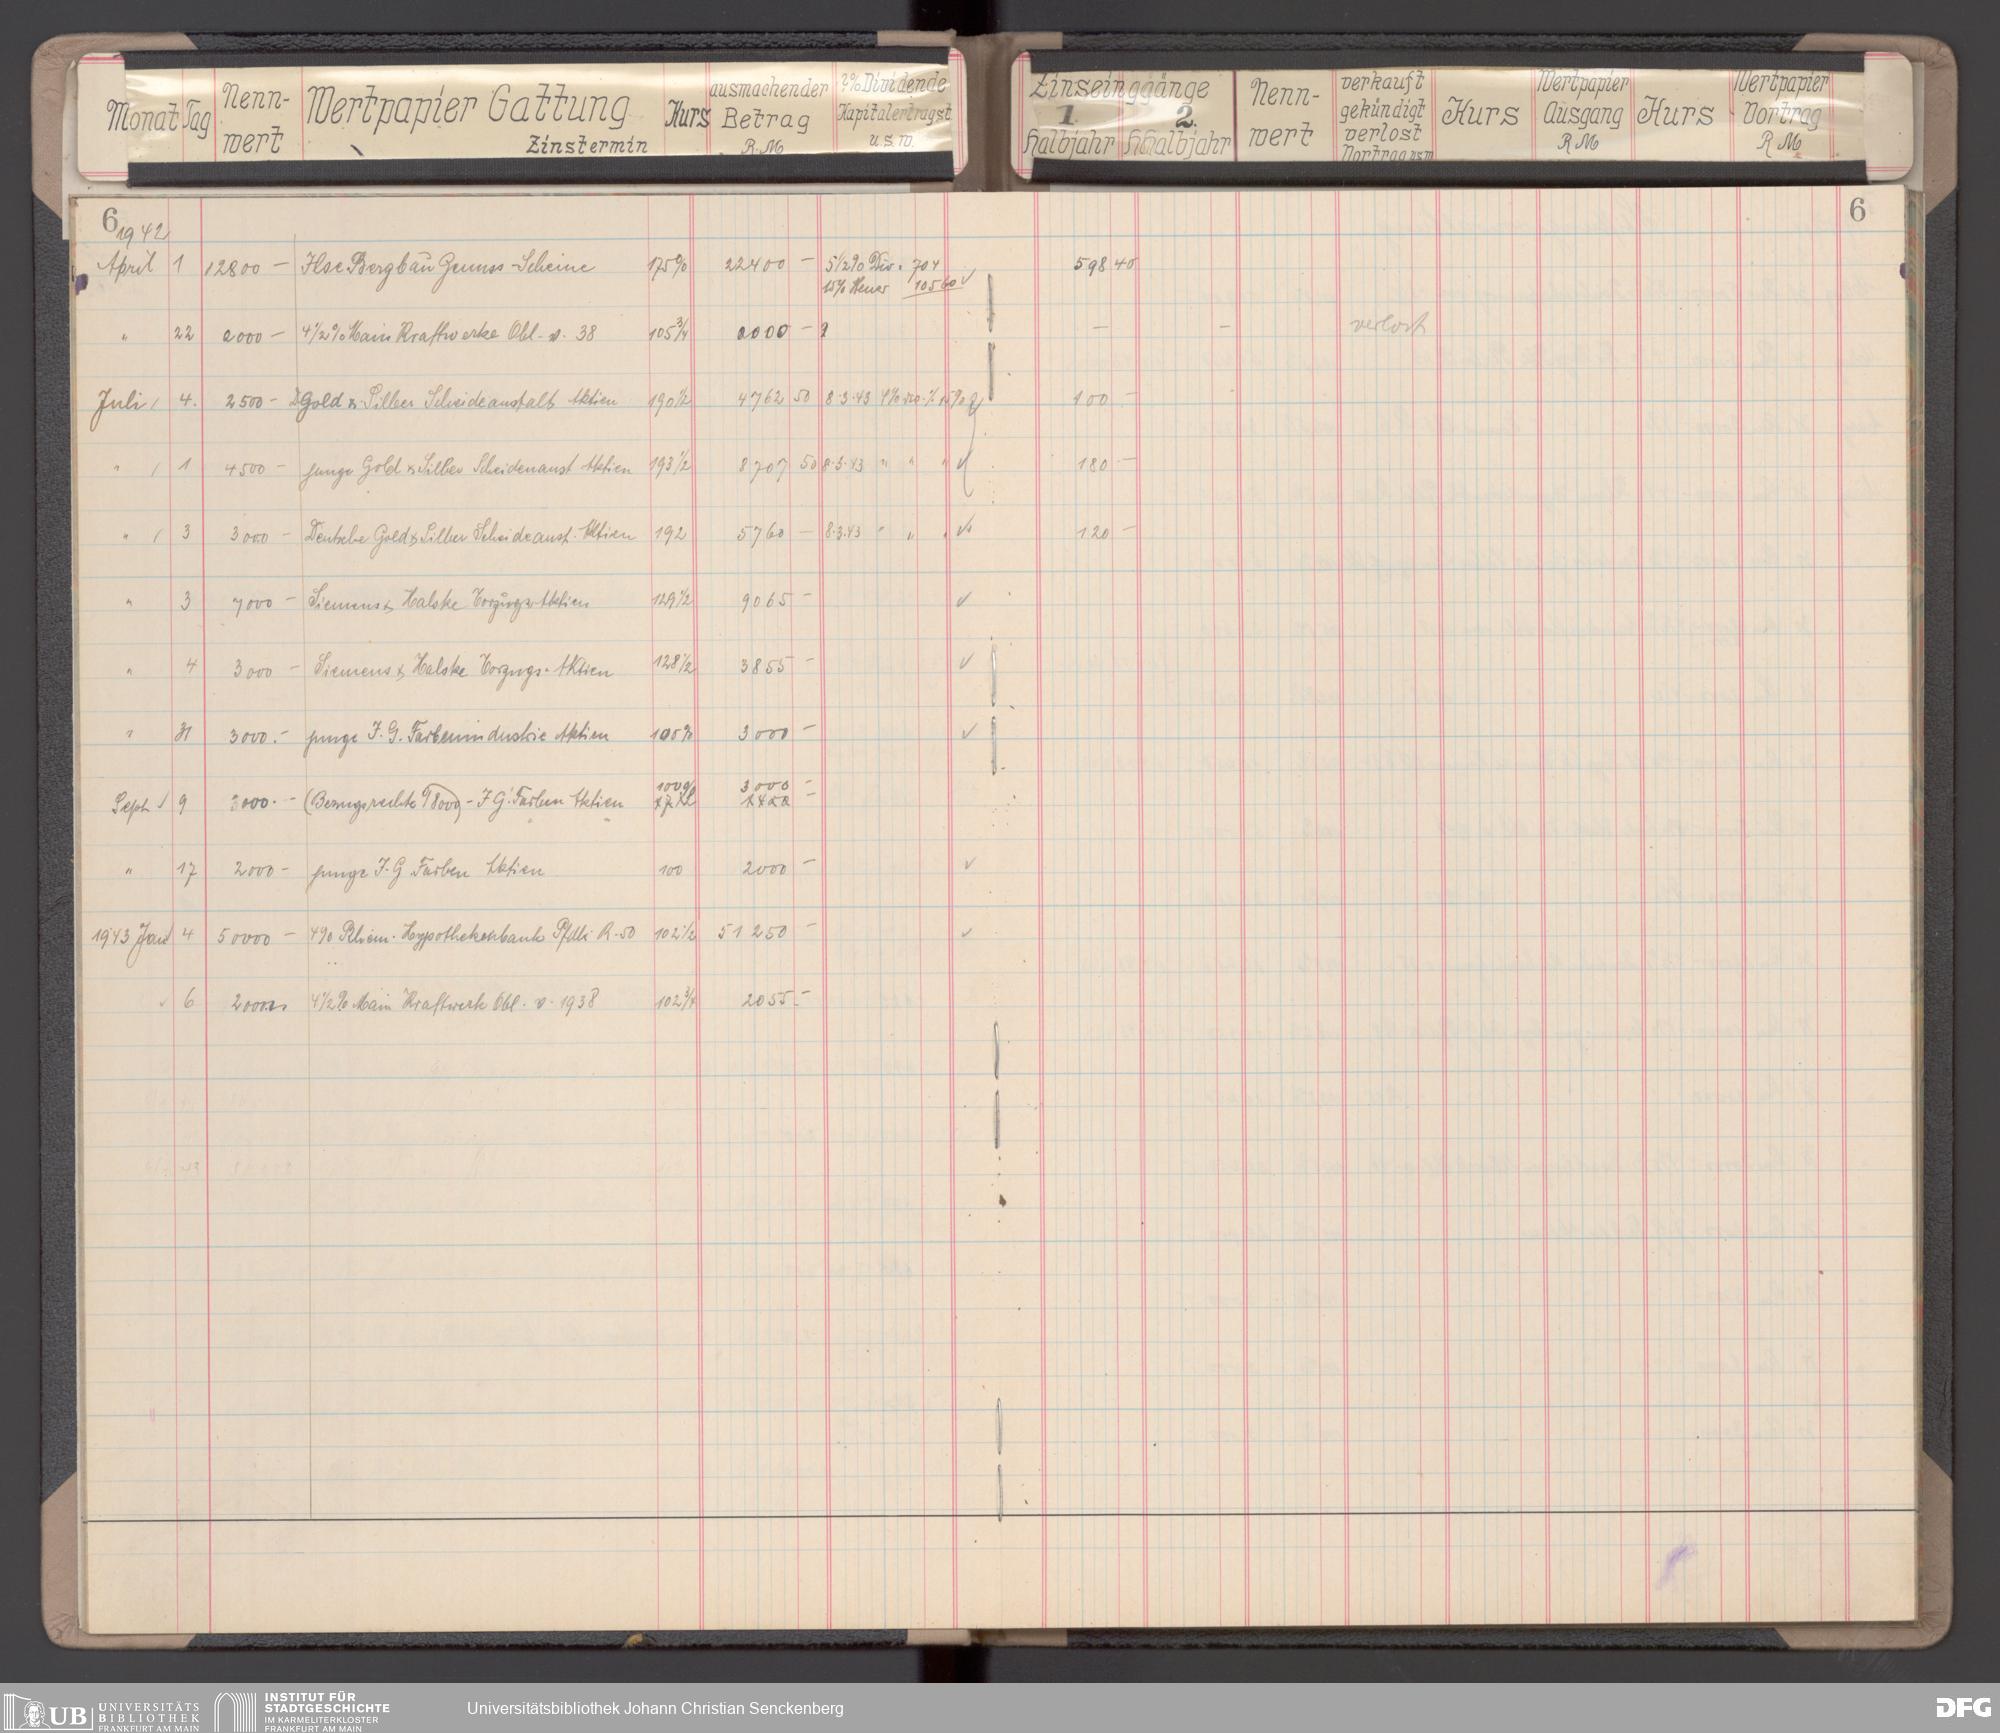 Monat Tag Nenn-wert Wertpapier Gattung Zinstermin Kurs ausmachender Betrag R.M. 2% Dividende Kapitalertragst u.s.w.
Zinseinggänge 1. Halbjahr 2. Halbjahr Nenn-wert verkauft gekündigt verlost Vortrag usw Kurs Wertpapier Ausgang RM Kurs Wertpapier Vortrag RM
6 6
1942
April 1 12800 — Ilse Bergbau Genuss-Scheine 175% 22400 — 5 1/2% Div. 704 598 40
15% Steuer 105 60 ✓
" 22 2000 — 4 1/2% Main Kraftwerke Obl. v. 38 105 3/4 — — verlost
Juli 4. 2500 — D Gold & Silber Scheideanstalt Aktien 190 1/2 4762 50 8.3.43 4% 100 —
" 1 4500 — junge Gold & Silber Scheidenanst Aktien 193 1/2 8707 50 8.3.43 " " " ✓ 180 —
" 3 3000 — Deutsche Gold & Silber Scheideanst. Aktien 192 5760 — 8.3.43 " " " ✓ 120 —
" 3 7000 — Siemens & Halske Vorzugs-Aktien 129 1/2 9065 — ✓
" 4 3000 — Siemens & Halske Vorzugs-Aktien 128 1/2 3855 — ✓
" 31 3000.— junge I. G. Farbenindustrie Aktien 100% 3000 — ✓
100% 3000 —
Sept 9 3000.— (Bezugsrechte 18000) - I G. Farben Aktien
" 17 2000 — junge I. G Farben Aktien 100 2000 — ✓
1943 Jan 4 50000 — 4% Rhein. Hypothekenbank Pfdbr R. 50 102 1/2 51250 — ✓
6 2000 4 1/2% Main Kraftwerk Obl. v. 1938 102 3/4 2055.—
UB UNIVERSITÄTS
BIBLIOTHEK
FRANKFURT AM MAIN
INSTITUT FÜR
STADTGESCHICHTE
IM KARMELITERKLOSTER
FRANKFURT AM MAIN
Universitätsbibliothek Johann Christian Senckenberg
DFG